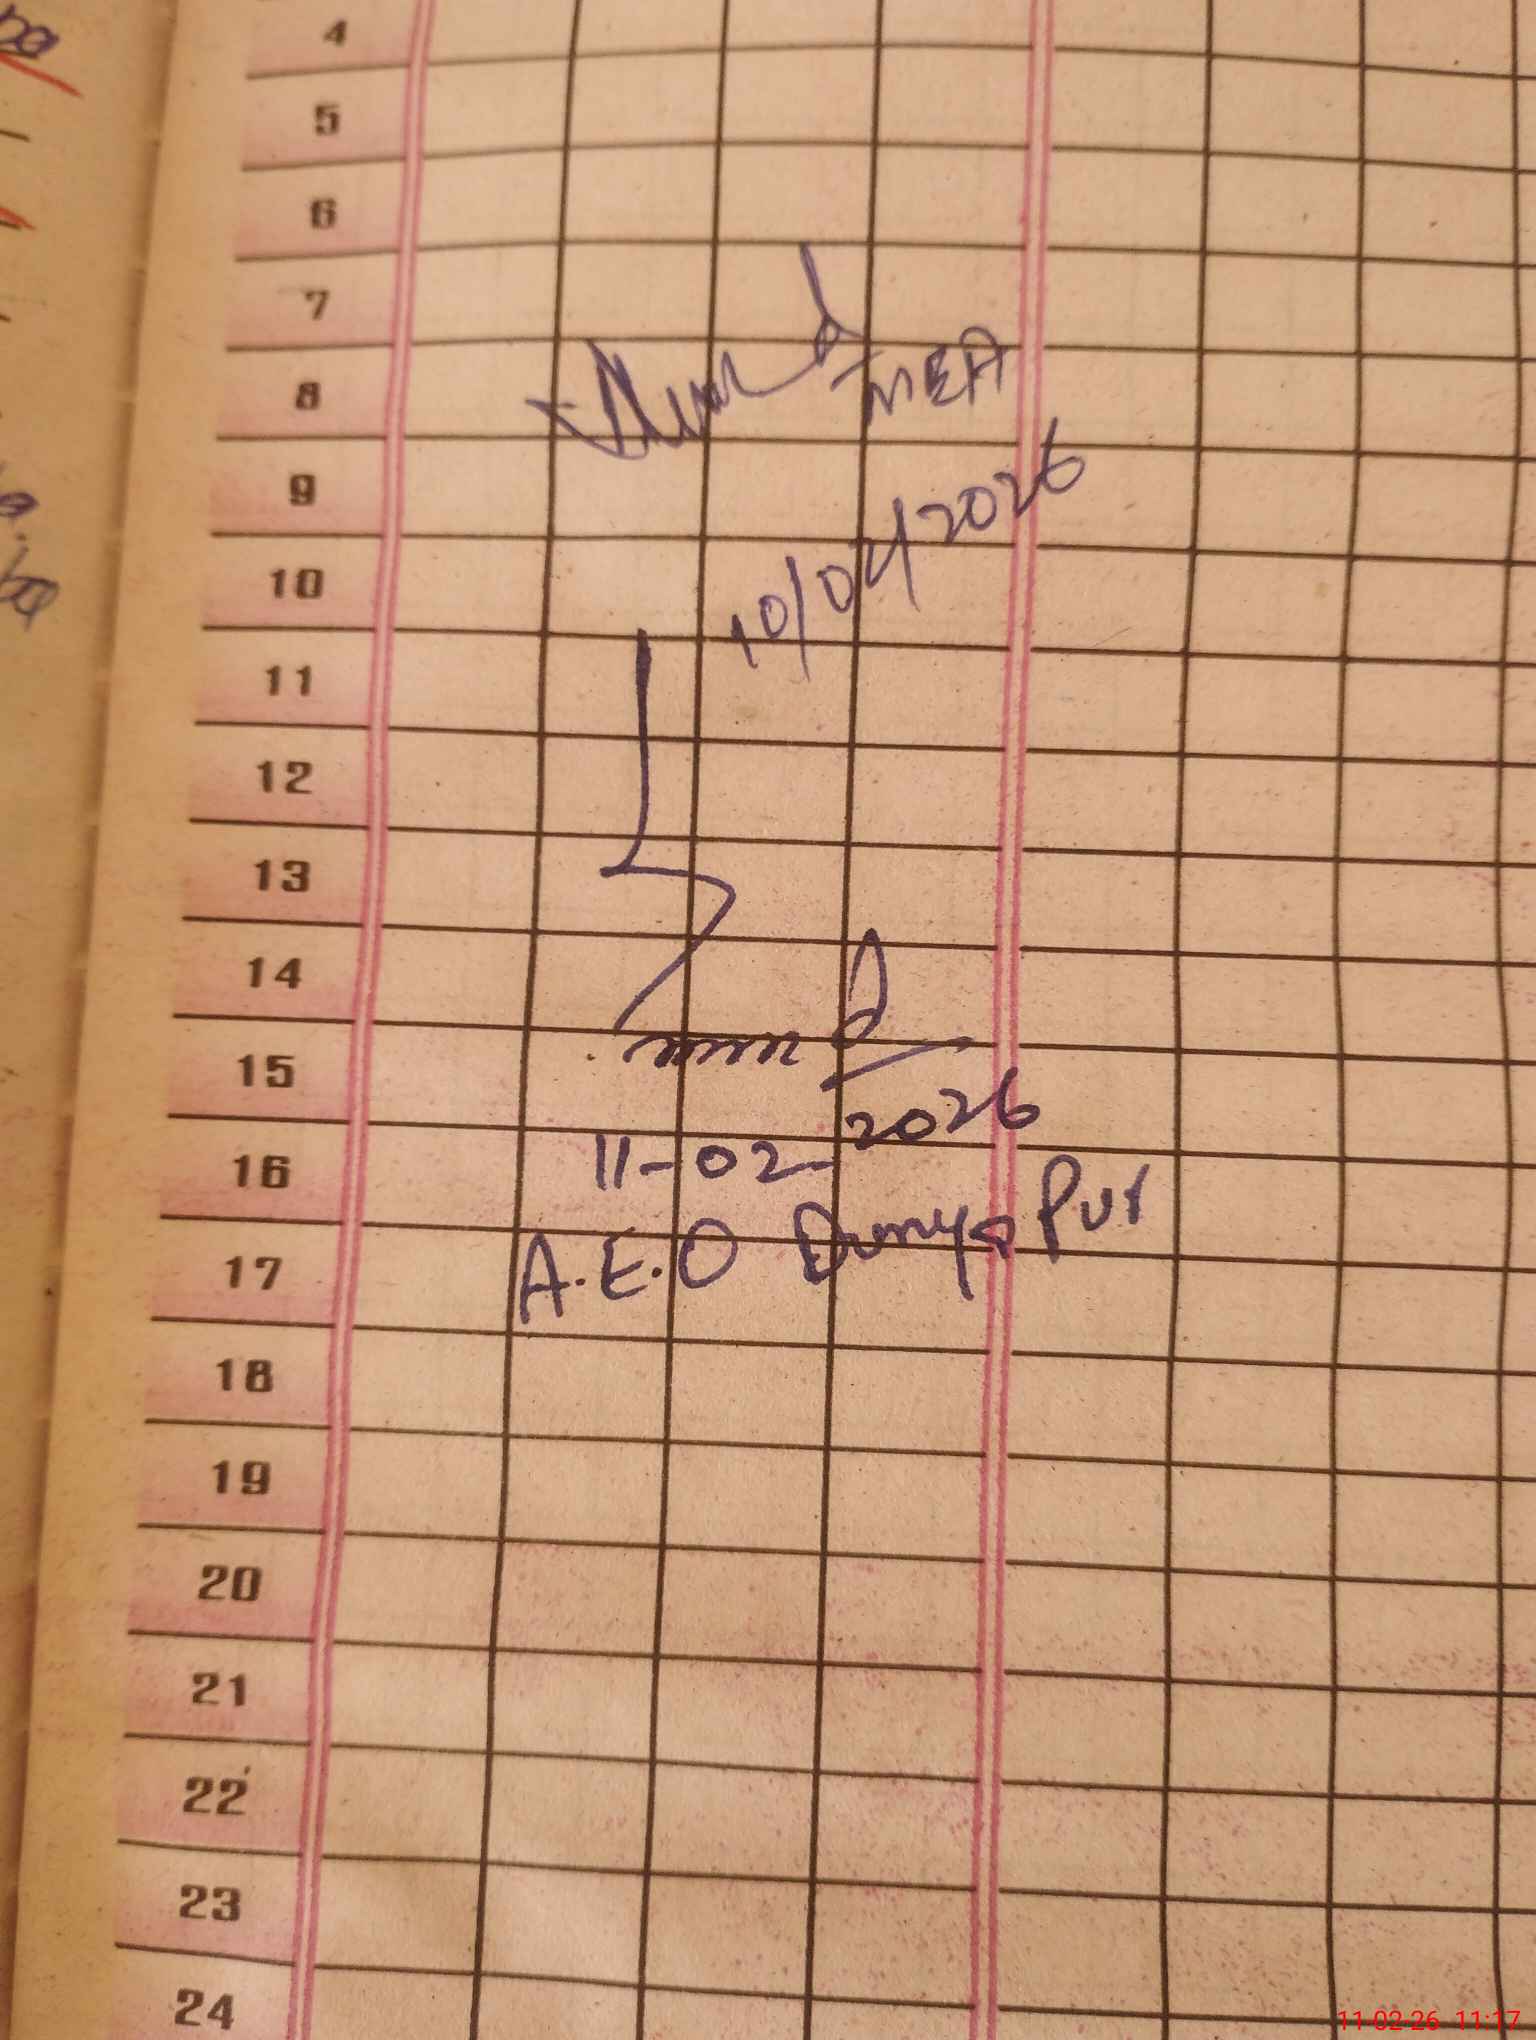 4
5
6
7
8
MEA
9
10/02/2026
10
11
12
13
14
15
11-02-2026
16
A.E.O Dunya Pur
17
18
19
20
21
22
23
24
11-02-26 11:17